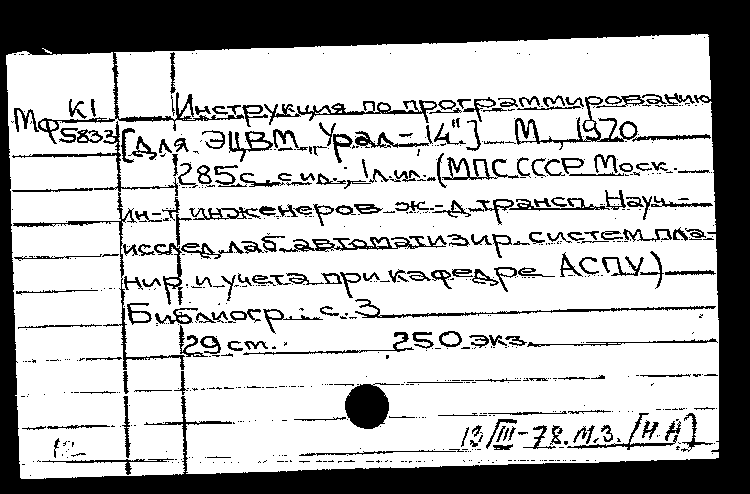 К1
Мф 5833
Инструкция по программированию
[для ЭЦВМ „Урал-14".] М., 1970
285с. с ил.; 1л.ил. (МПС СССР Моск.
ин-т инженеров ж-д. трансп. Науч.-
исслед. лаб. автоматизир. систем пла-
нир. и учета при кафедре АСПУ)
Библиогр.: с. 3
29 ст. 250 экз.
13/III-78. М.З. [Н.А]
12